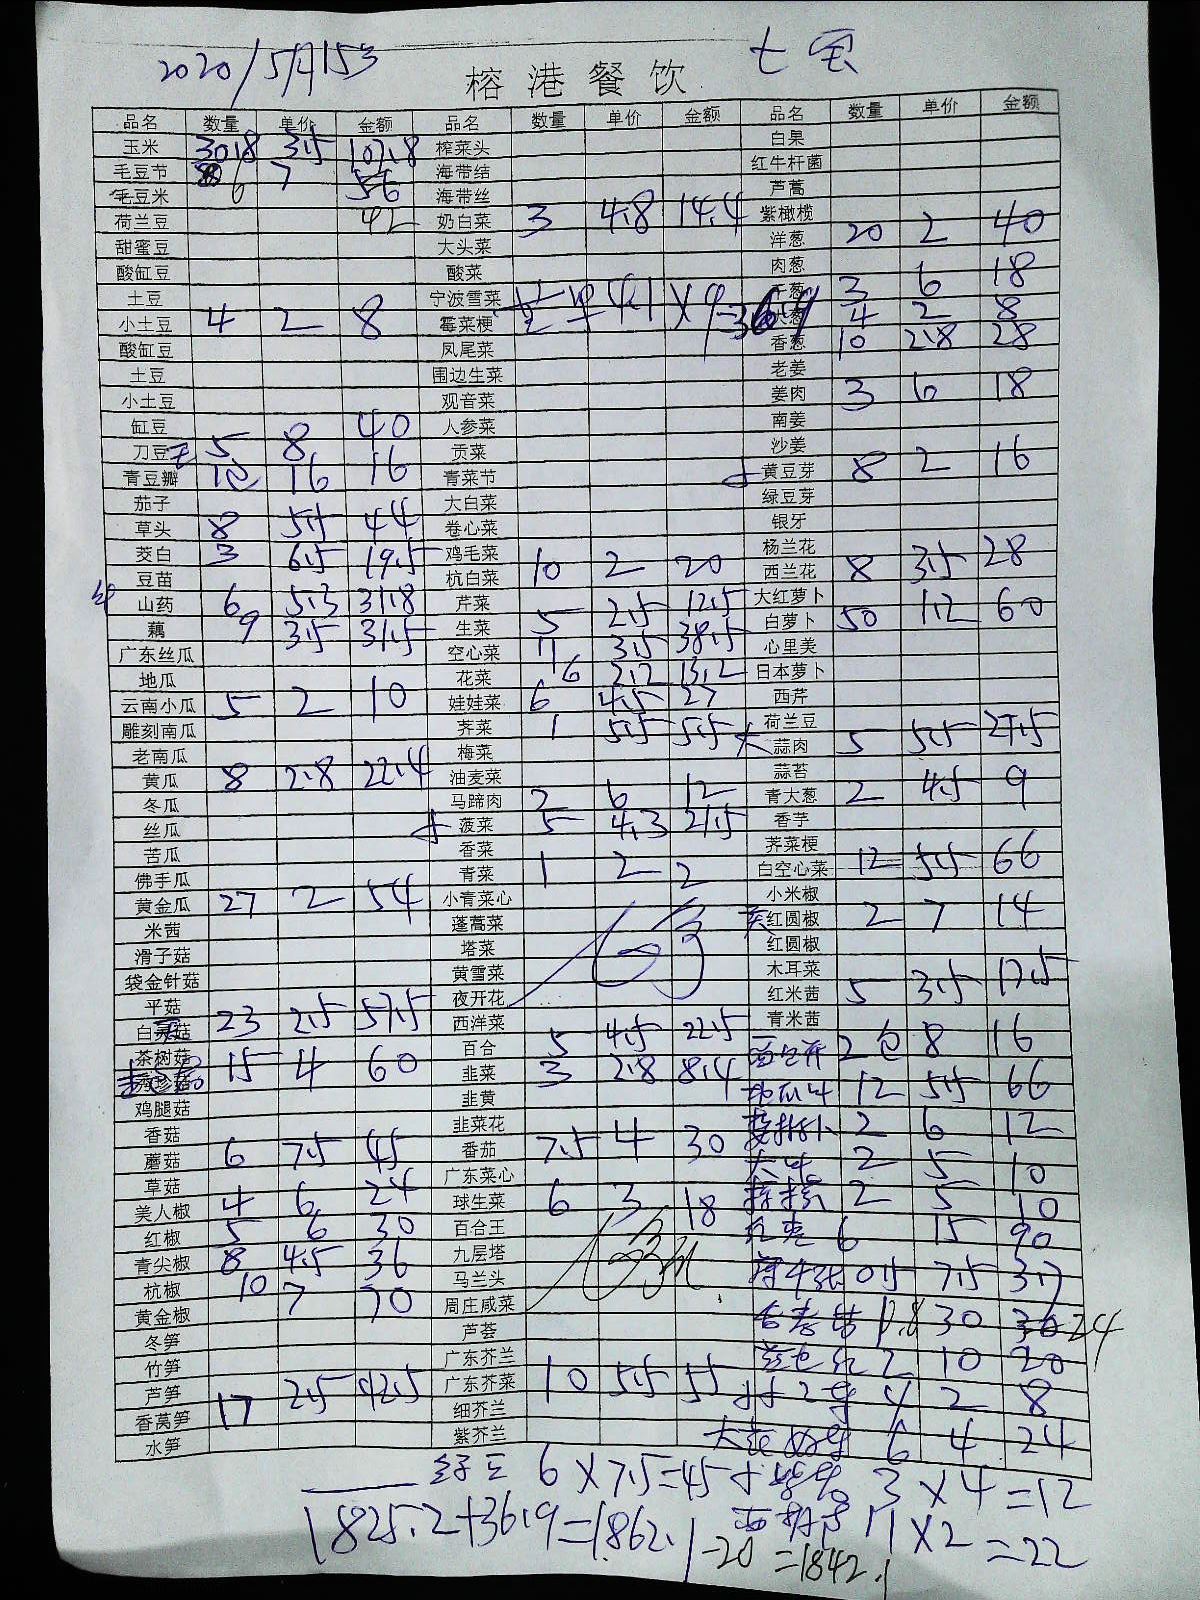 2020/5月15
七宝
榕港餐饮
品名 数量 单价 金额 品名 数量 单价 金额 品名 数量 单价 金额
玉米 30.8 3.5 107.8 榨菜头 白果
毛豆节 7 56 海带结 红牛杆菌
毛豆米 6 42 海带丝 芦蒿
荷兰豆 奶白菜 3 4.8 14.4 紫橄榄
甜蜜豆 大头菜 洋葱 20 2 40
酸缸豆 酸菜 肉葱 3 6 18
土豆 4 2 8 宁波雪菜 4 2 8
小土豆 霉菜梗 香葱 10 2.8 28
酸缸豆 凤尾菜 老姜
土豆 围边生菜 姜肉 3 6 18
小土豆 观音菜 南姜
缸豆 5 8 40 人参菜 沙姜
刀豆 贡菜 黄豆芽 8 2 16
青豆瓣 1包 16 16 青菜节 绿豆芽
茄子 大白菜 银牙
草头 8 5.5 44 卷心菜 杨兰花
茭白 3 6.5 19.5 鸡毛菜 10 2 20 西兰花 8 3.5 28
豆苗 杭白菜 大红萝卜
山药 6 5.3 31.8 芹菜 5 2.5 12.5 白萝卜 50 1.2 60
藕 9 3.5 31.5 生菜 11 3.5 38.5 心里美
广东丝瓜 空心菜 6 2.2 13.2 日本萝卜
地瓜 花菜 6 4.5 27 西芹
云南小瓜 5 2 10 娃娃菜 1 5.5 5.5 荷兰豆
雕刻南瓜 荠菜 蒜肉 5 5.5 27.5
老南瓜 梅菜 蒜苔
黄瓜 8 2.8 22.4 油麦菜 青大葱 2 4.5 9
冬瓜 马蹄肉 2 6 12 香芋
丝瓜 菠菜 5 4.3 21.5 荠菜梗
苦瓜 香菜 白空心菜 12 5.5 66
佛手瓜 青菜 1 2 2 小米椒
黄金瓜 27 2 54 小青菜心 红圆椒 2 7 14
米茜 蓬蒿菜 红圆椒
滑子菇 塔菜 木耳菜
袋金针菇 黄雪菜 红米茜 5 3.5 17.5
平菇 夜开花 青米茜
白灵菇 23 2.5 57.5 西洋菜 2包 8 16
茶树菇 15 4 60 百合 5 4.5 22.5 12 5.5 66
秀珍菇 韭菜 3 2.8 8.4 2 6 12
鸡腿菇 韭黄 2 5 10
香菇 韭菜花 2 5 10
蘑菇 6 7.5 45 番茄 7.5 4 30 红枣 6 15 90
草菇 广东菜心 0.5 7.5 3.7
美人椒 4 6 24 球生菜 6 3 18 0.8 30 24
红椒 5 6 30 百合王 2 10 20
青尖椒 8 4.5 36 九层塔 4 2 8
杭椒 10 7 70 马兰头 6 4 24
黄金椒 周庄咸菜
冬笋 芦荟
竹笋 广东芥兰
芦笋 17 2.5 42.5 广东芥菜 10 5.5 55
香莴笋 细芥兰
水笋 紫芥兰
6×7.5=45 3×4=12
1825.2+36.9=1862.1-20=1842.1
11×2=22